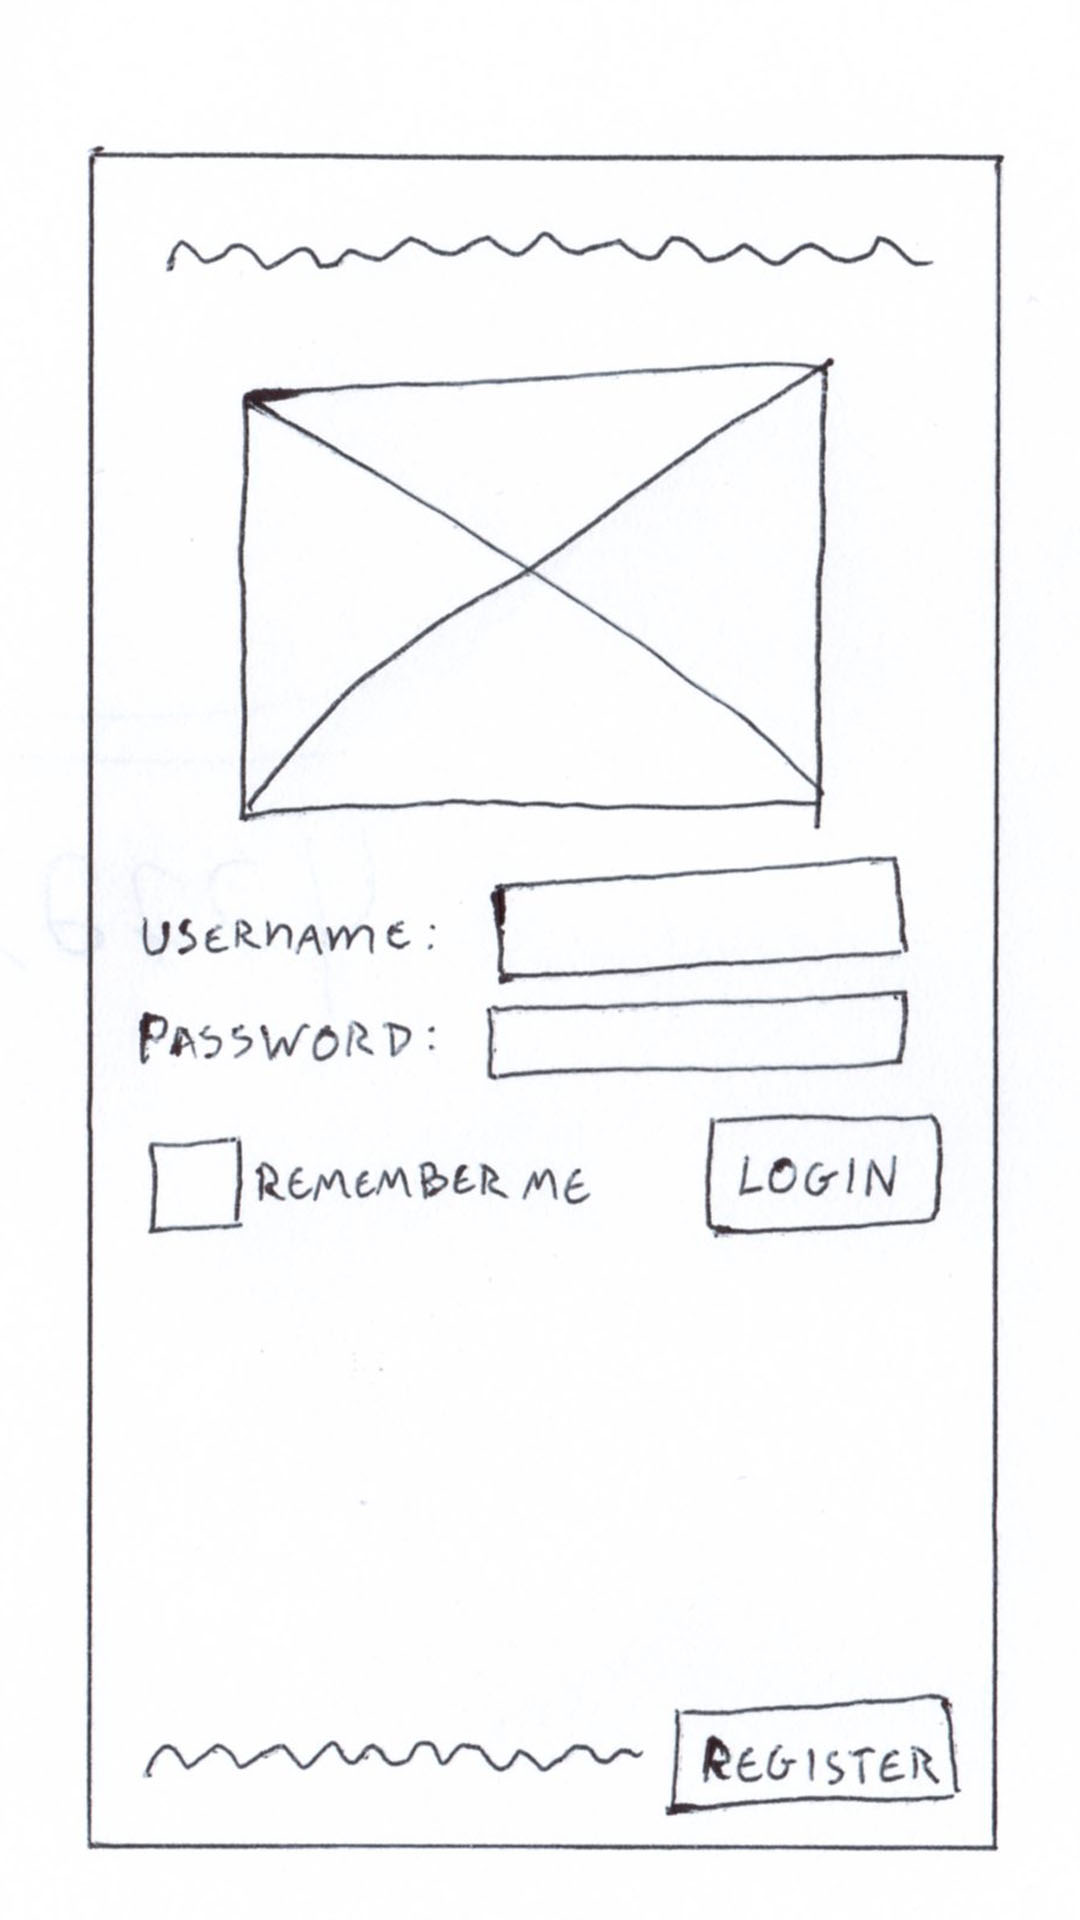 USERNAME:
PASSWORD:
REMEMBER ME
LOGIN
REGISTER